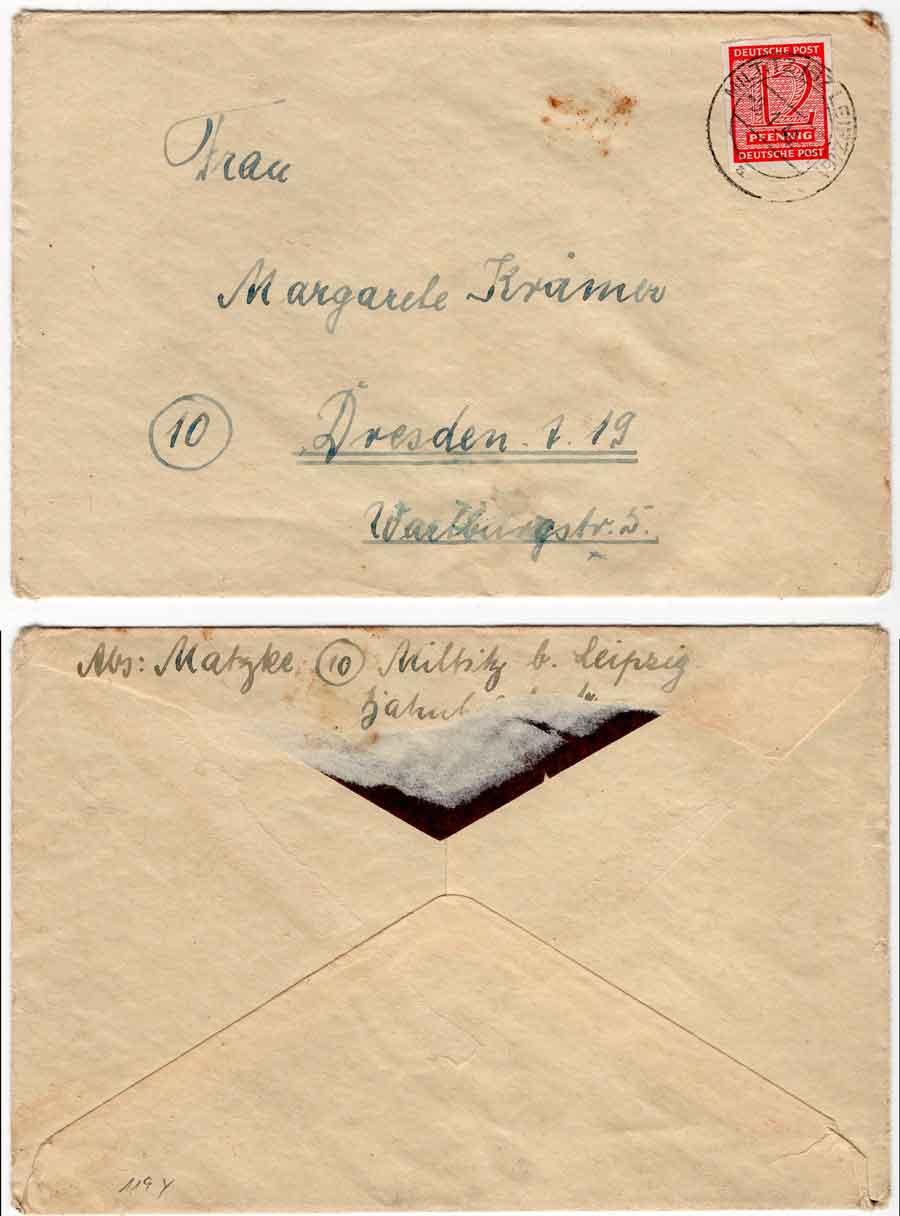 DEUTSCHE POST
12
PFENNIG
DEUTSCHE POST
MILTITZ LEIPZIG
Frau
Margarete Krämer
10
Dresden
19
Wartburgstr. 5.
Abs: Matzke 10 Miltitz b. Leipzig
119 Y